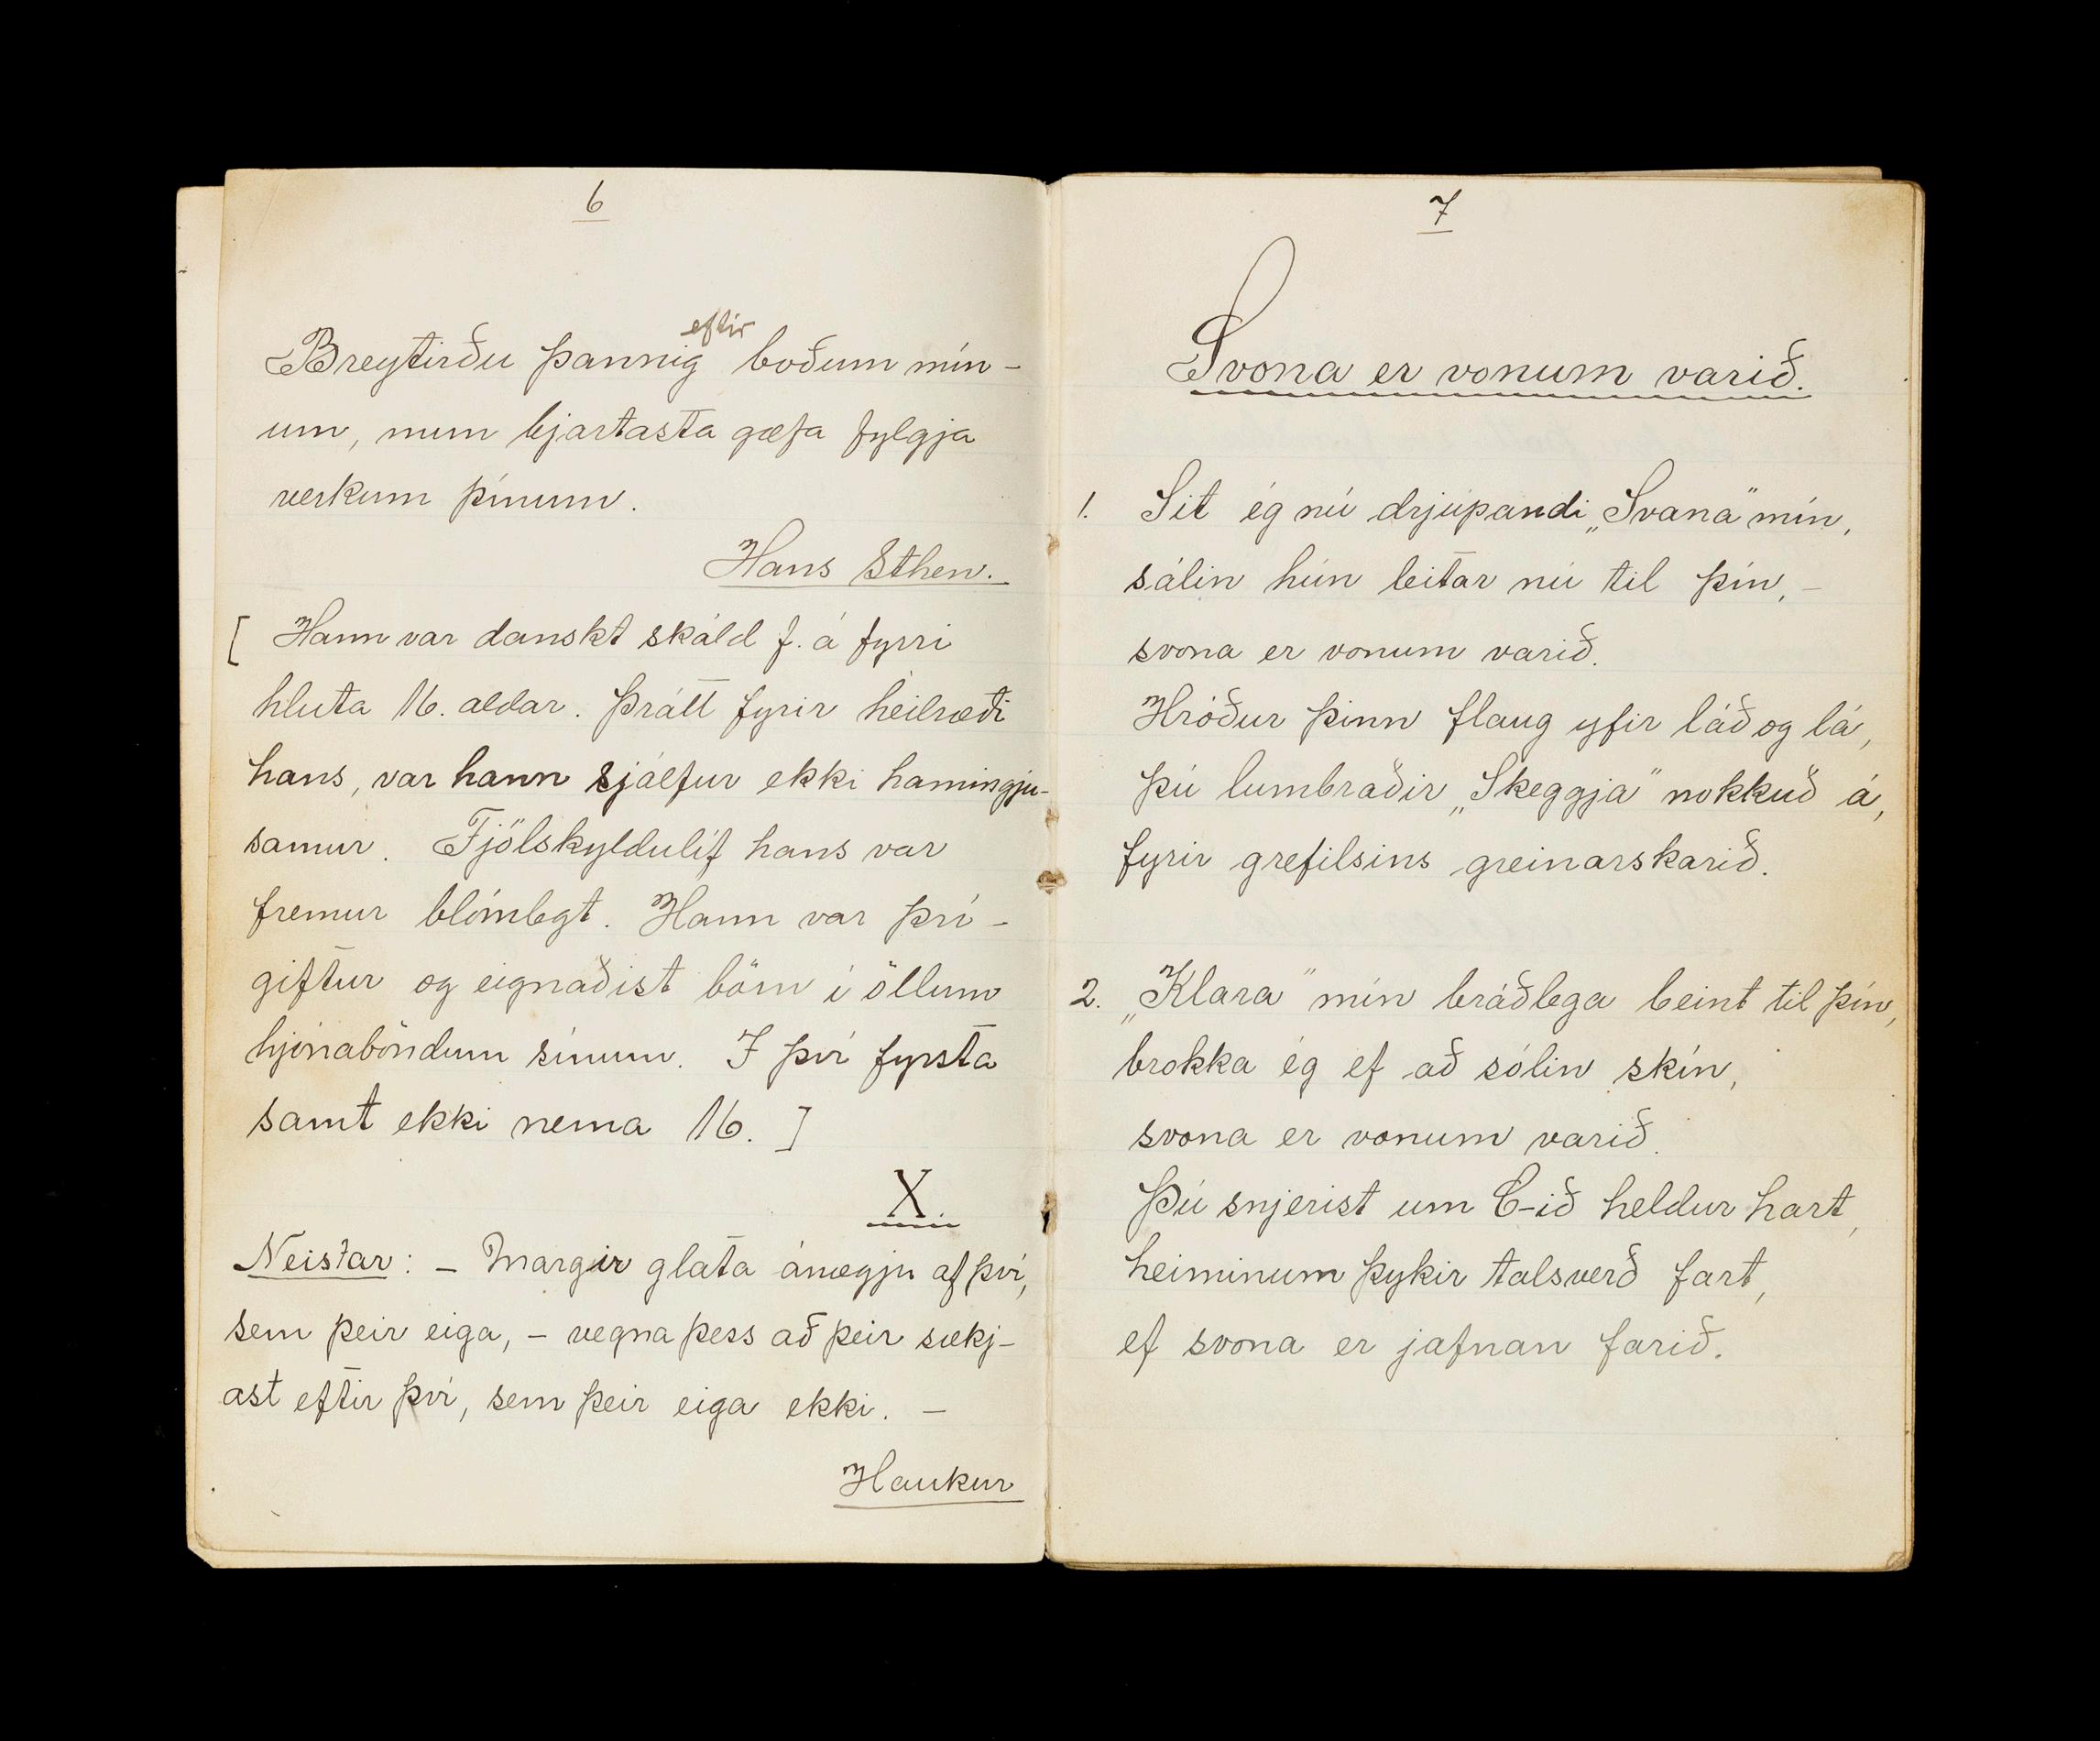 6
Breytirðu þannig eftir boðum mín-
um, mun bjartasta gæfa fylgja
verkum þínum.
Hans Sthen.
[ Hann var danskt skáld f. á fyrri
hluta 16. aldar. Þrátt fyrir heilræði
hans, var hann sjálfur ekki hamingju-
samur. Fjölskyldulíf hans var
fremur blómlegt. Hann var þrí-
giftur og eignaðist börn í öllum
hjónaböndum sínum. Í því fyrsta
samt ekki nema 16. ]
X.
Neistar: - Margir glata ánægju af því,
sem þeir eiga, - vegna þess að þeir sækj-
ast eftir því, sem þeir eiga ekki. -
Haukur
7
Svona er vonum varið.
1. Sit ég nú drjúpandi „Svana" mín,
sálin hún leitar nú til þín, -
svona er vonum varið.
Hróður þinn flaug yfir láð og lá,
þú lumbraðir „Skeggja" nokkuð á,
fyrir grefilsins greinarskarið.
2. „Klara" mín bráðlega beint til þín,
brokka ég ef að sólin skín,
svona er vonum varið.
Þú snjerist um C-ið heldur hart,
heiminum þykir talsverð fart,
ef svona er jafnan farið.